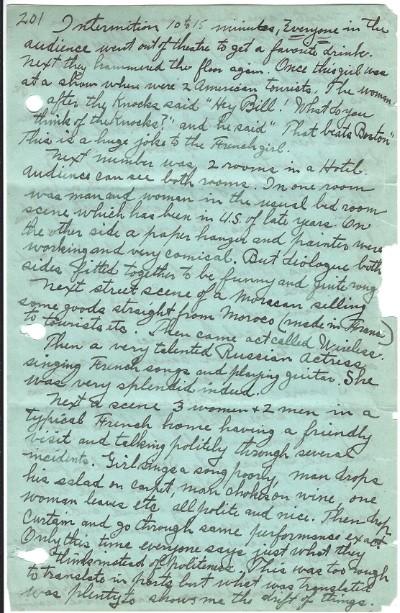 201
Intermition 10 to 15 minutes, Everyone in the
audience went out of theatre to get a favorite drink.
Next they hammered the floor again. Once this girl was
at a show when were 2 American tourists. The woman
after the Knocks said "Hey Bill! What do you
think of the Knocks?" and he said "That beats Boston"
This is a huge joke to the French girl.
Next number was 2 rooms in a Hotel.
audience can see both rooms. In one room
was man and woman in the usual bed room
scene which has been in U.S. of late years. On
the other side a paper hanger and painter were
working and very comical. But dialogue both
sides fitted together to be funny and quite
Next street scene of a Morocan selling
some goods straight from Moroco (made in France)
to tourists etc. Then came act called Wireless.
Then a very talented Russian actress
singing French songs and playing guitar. She
was very splendid indeed.
Next a scene 3 women + 2 men in a
typical French home having a friendly
visit and talking politely through several
incidents. Girl sings a song poorly, man drops
his salad on carpet, man chokes on wine, one
woman leaves etc all polite and nice. Then drop
curtain and go through same performance exact
Only this time everyone says just what they
think instead of politeness. This was too rough
to translate in parts but what was translated
was plenty to shows me the drift of things.